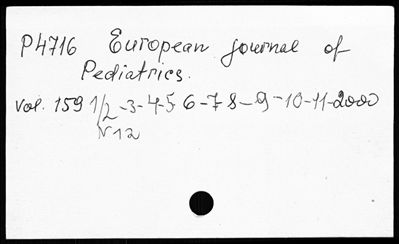 P4716 European journal of
Pediatrics.
vol. 159 1/2-3-4-5 6-7 8-9-10-11-2000
N12